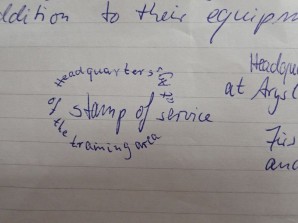 ddition to their equipm
Headqu
at Arys
Headquarters
of stamp of service
the training area
and